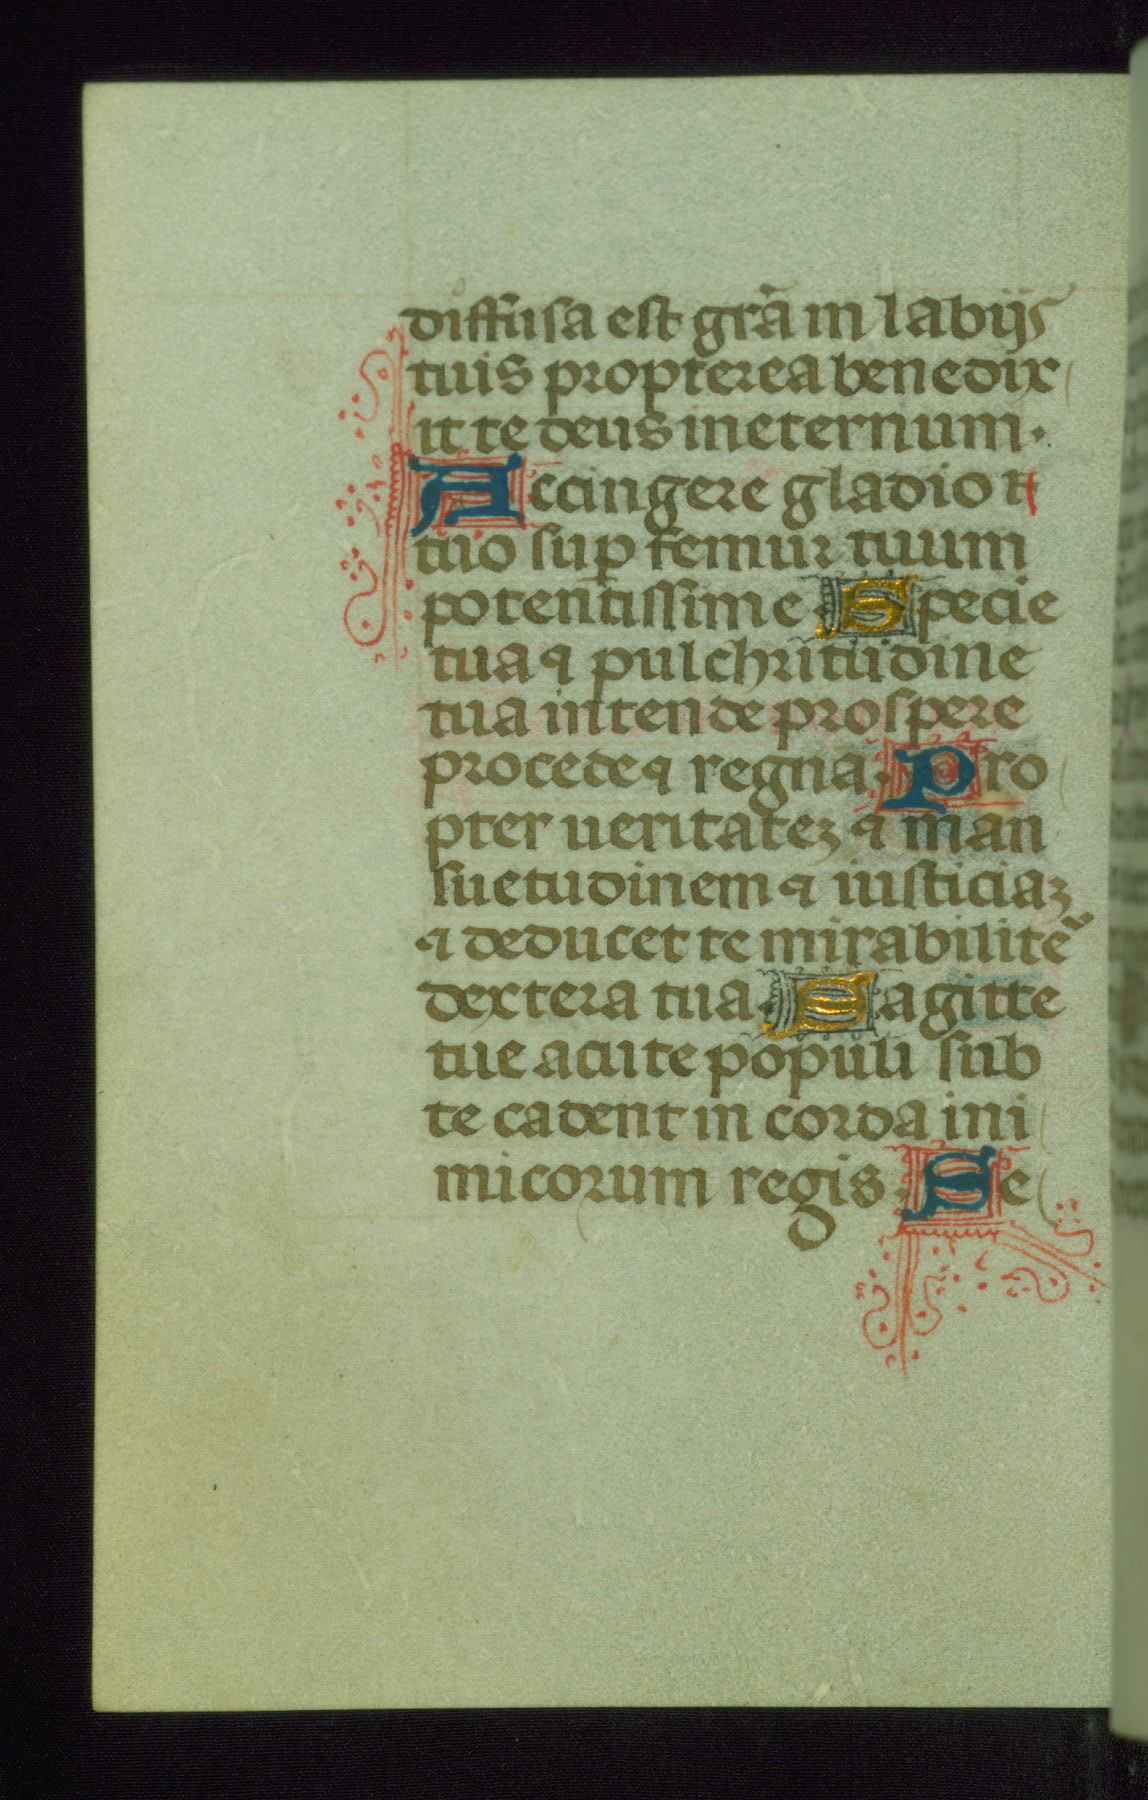 diffusa est grã in labijs
tuis propterea benedix
it te deus in eternum.
Accingere gladio t
tuo sup femur tuum
potentissime Specie
tua ⁊ pulchritudine
tua intende prospere
procede ⁊ regna. Pro
pter ueritateꝫ ⁊ man
suetudinem ⁊ iusticiaꝫ
⁊ deducet te mirabilitẽ
dextera tua. Sagitte
tue acute populi sub
te cadent in corda ini
micorum regis. Se